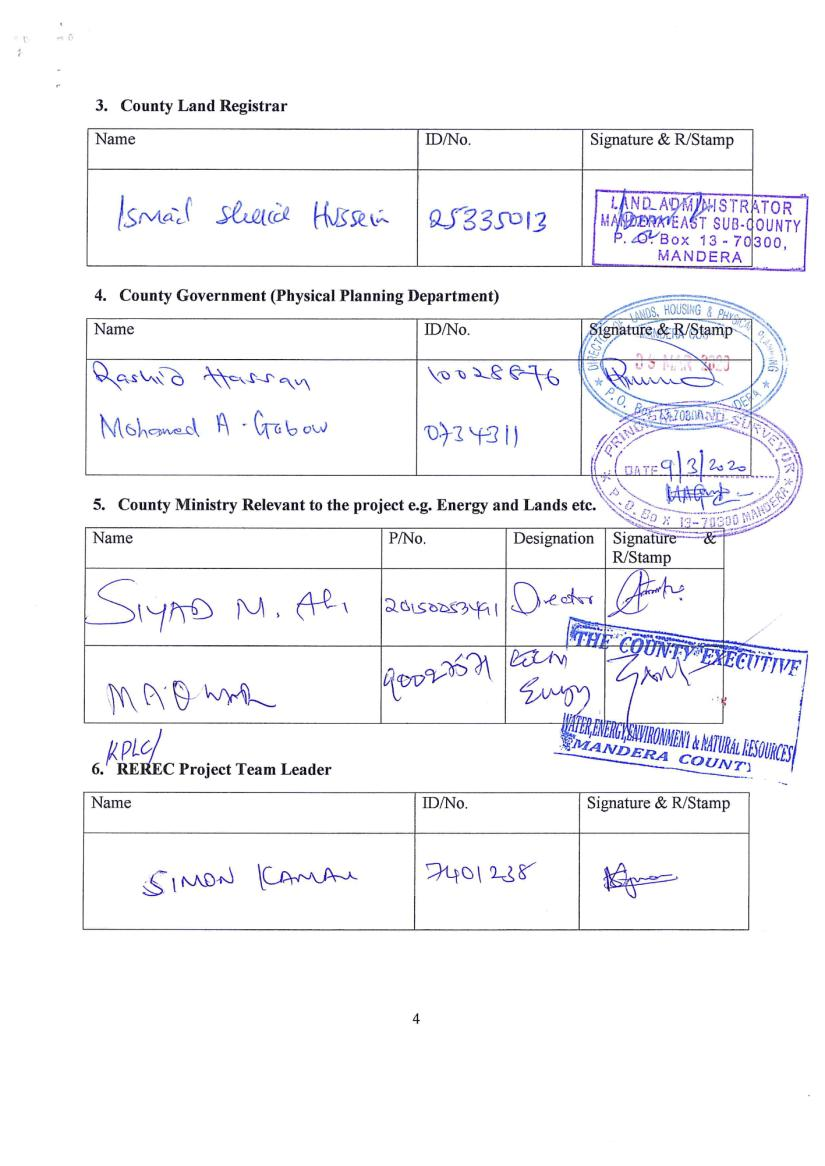 3. County Land Registrar
Name ID/No. Signature & R/Stamp
Ismail Sheikh Hussein 25335013
LAND ADMINISTRATOR
MANDERA EAST SUB-COUNTY
P. O. Box 13 - 70300,
MANDERA
4. County Government (Physical Planning Department)
Name ID/No. Signature & R/Stamp
DIRECTOR OF LANDS, HOUSING & PHYSICAL PLANNING
Rashid Hassan 10028876
Mohamed A. Gabow 0734311
SURVEYOR
DATE 9/3/2020
P.O. Box 13-70300 MANDERA
5. County Ministry Relevant to the project e.g. Energy and Lands etc.
Name P/No. Designation Signature & R/Stamp
SIYAD M. Ali 20150053491 Director
THE COUNTY EXECUTIVE
WATER, ENERGY, ENVIRONMENT & NATURAL RESOURCES
MANDERA COUNTY
KPLC/
6. REREC Project Team Leader
Name ID/No. Signature & R/Stamp
SIMON KAMAU 7401238
4